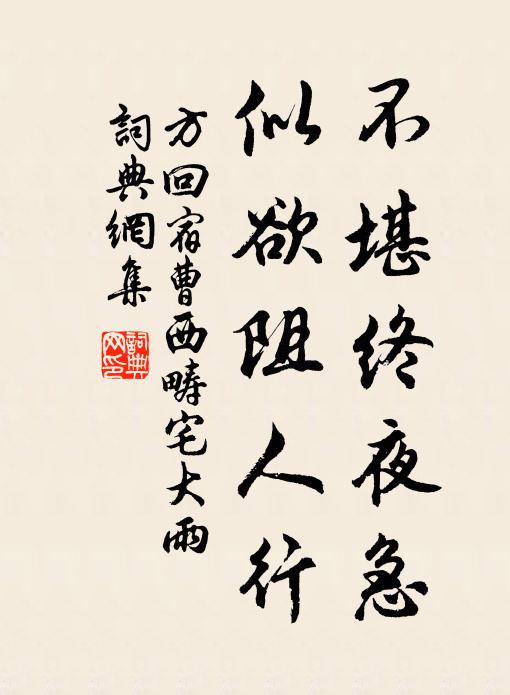 不堪終夜急
似欲阻人行
方回宿曹西疇宅大雨
詞典網集
詞典網印